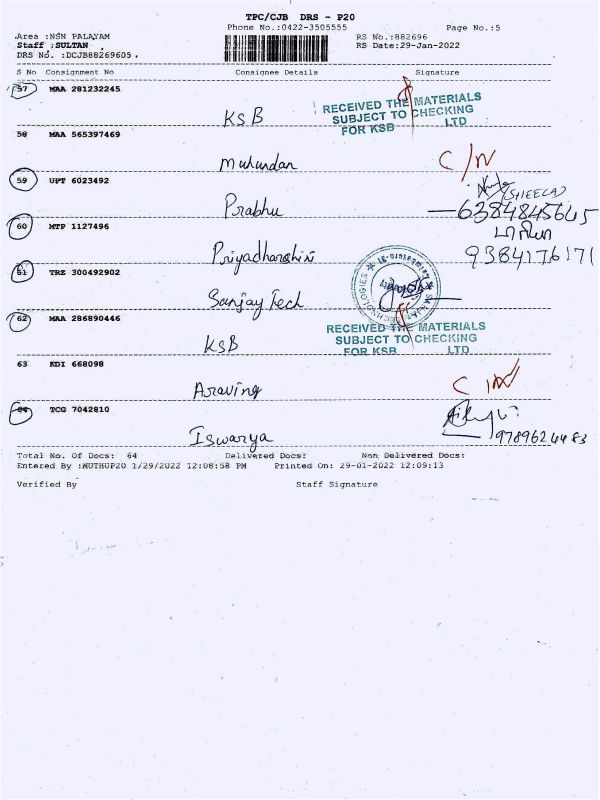 TPC/CJB DRS - P20
Phone No.:0422-3505555
Page No.:5
Area :NSN PALAYAM
RS No.:882696
Staff :SULTAN
RS Date:29-Jan-2022
DRS No. :DCJB88269605 .
S No Consignment No Consignee Details Signature
57 MAA 281232245
KSB
RECEIVED THE MATERIALS
SUBJECT TO CHECKING
FOR KSB LTD
58 MAA 565397469
Mukundan C/N
59 UPT 6023492
Prabhu
(SHEELA)
6384845645
60 MTP 1127496
Priyadharshini
9384176171
61 TRZ 300492902
Sanjay Tech
62 MAA 286890446
KSB
RECEIVED THE MATERIALS
SUBJECT TO CHECKING
FOR KSB LTD
63 KDI 668098
Aravind C/N
64 TCG 7042810
Iswarya
9789624483
Total No. Of Docs: 64 Delivered Docs: Non Delivered Docs:
Entered By :MUTHUP20 1/29/2022 12:08:58 PM Printed On: 29-01-2022 12:09:13
Verified By Staff Signature